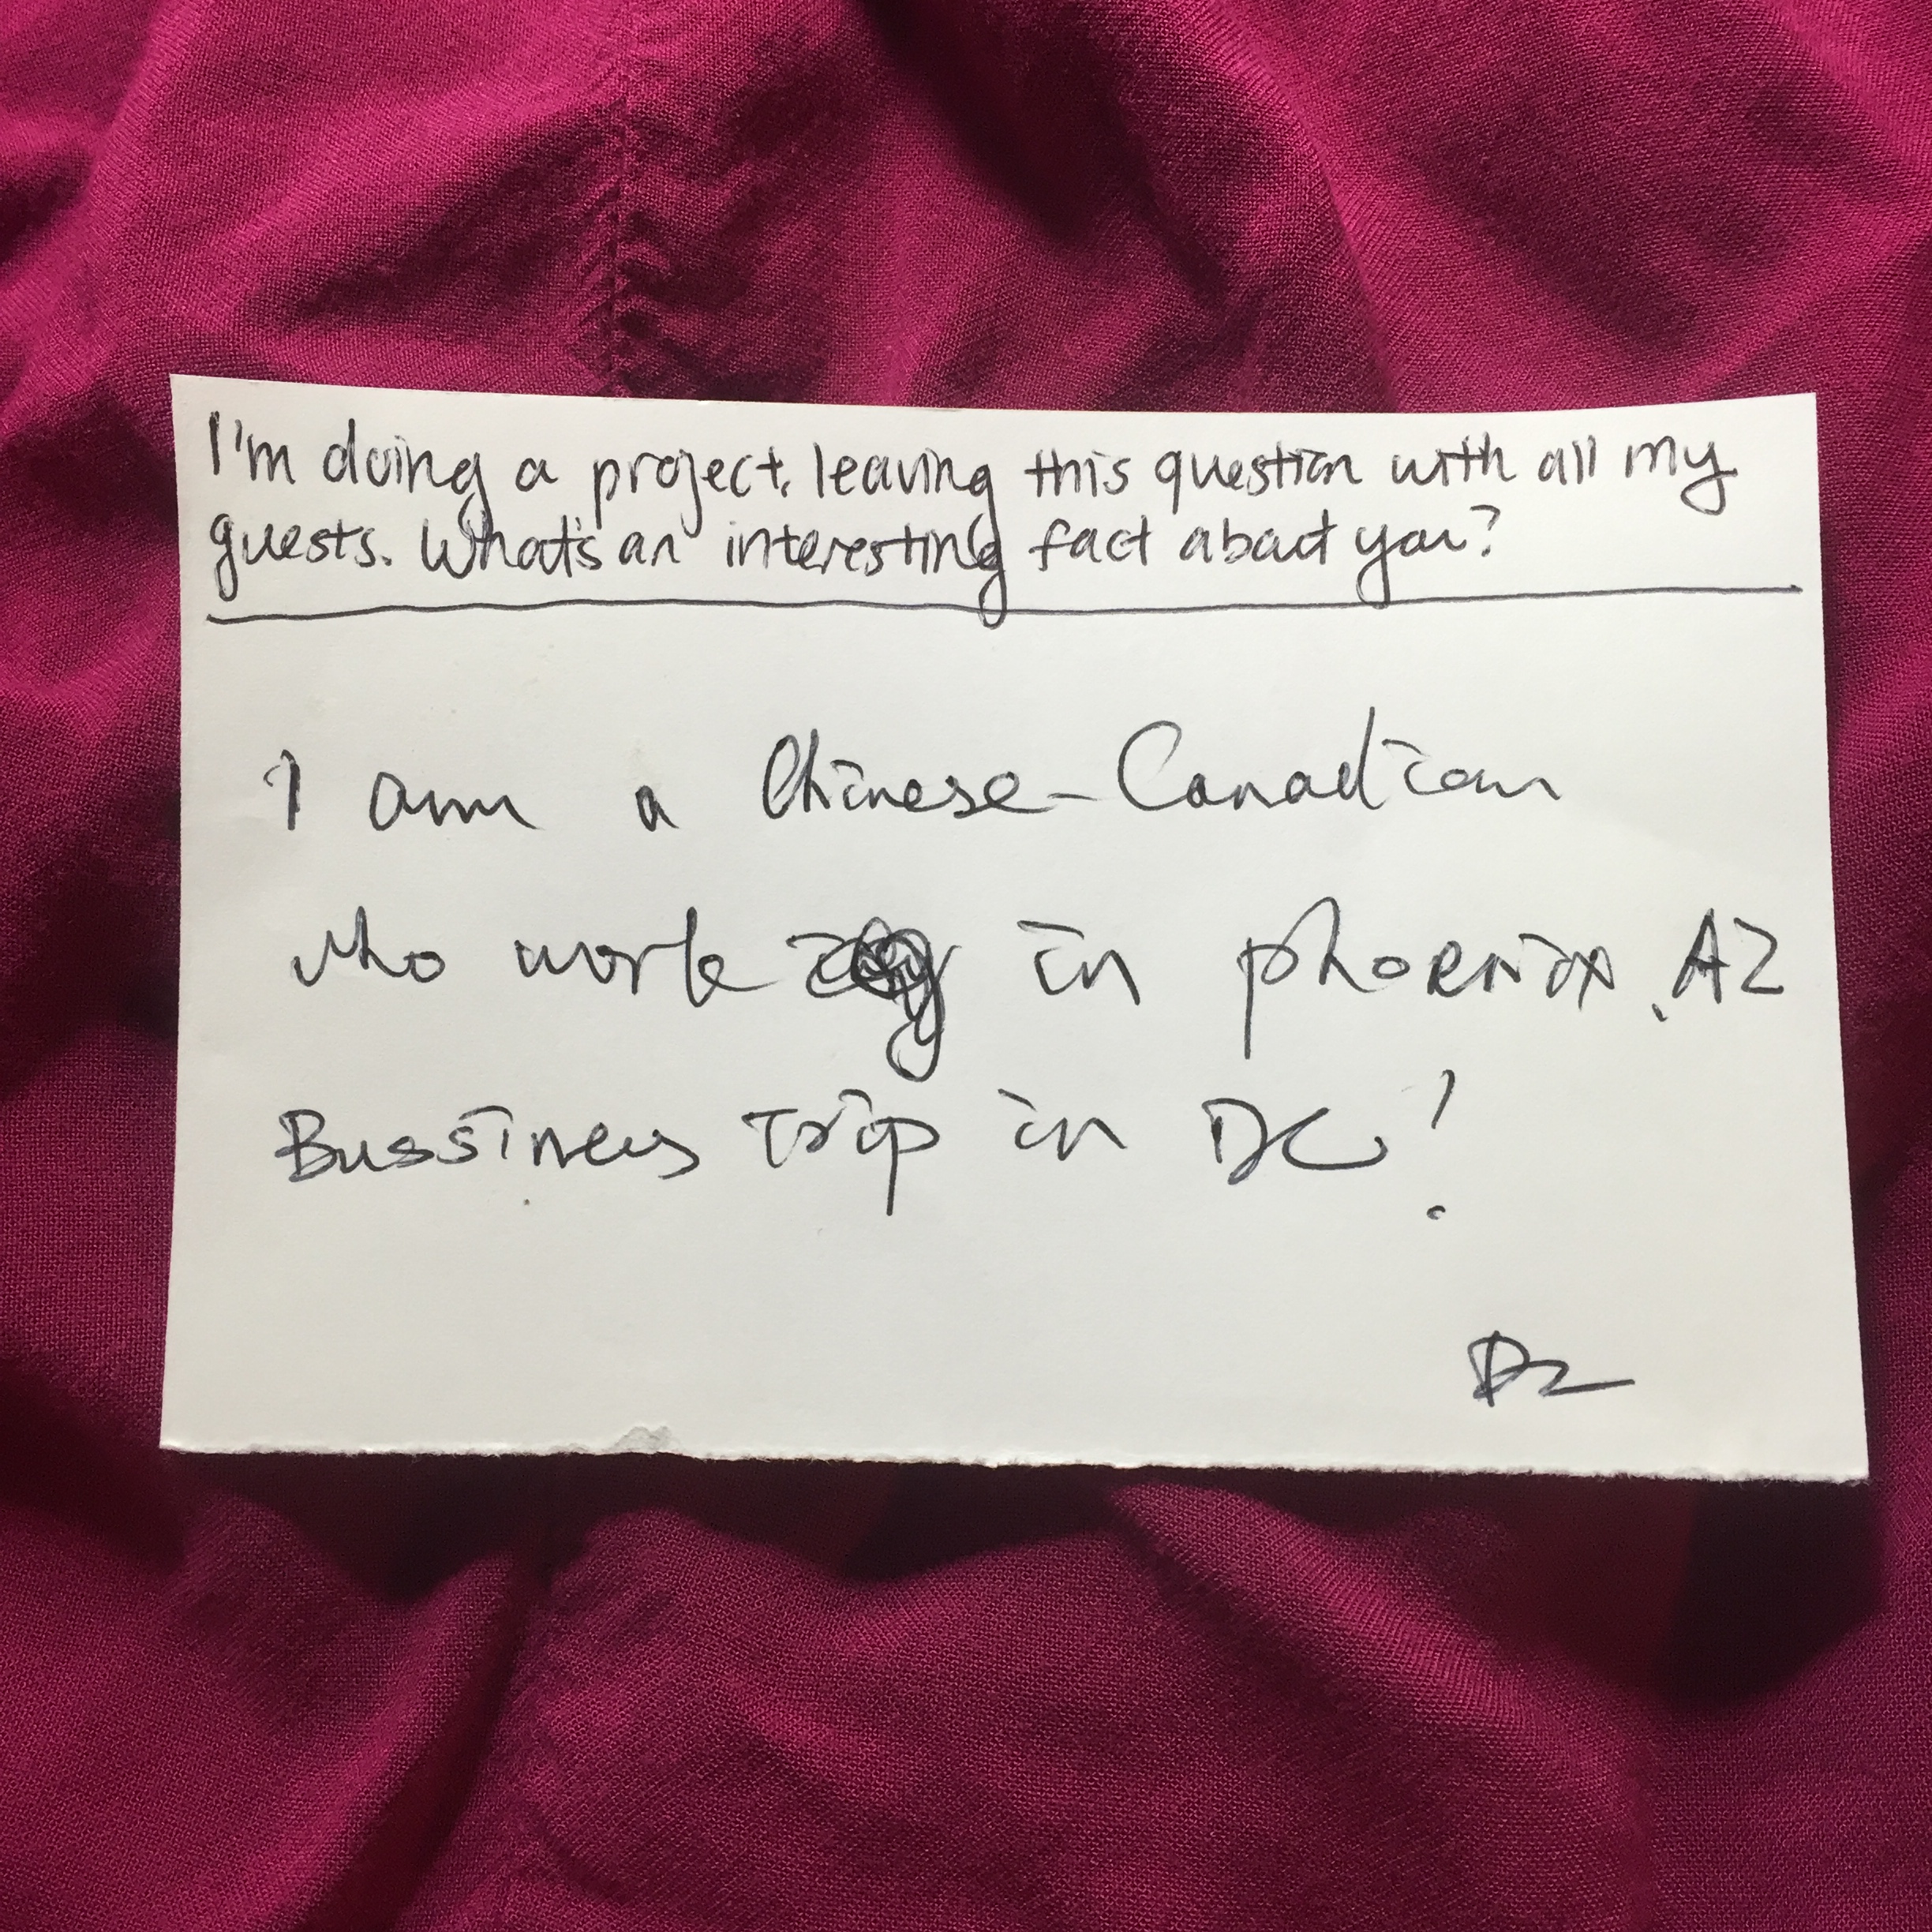 I'm doing a project, leaving this question with all my
guests. What's an interesting fact about you?
I am a Chinese-Canadian
who work in phoenix, AZ
Bussiness Trip in DC!
DZ